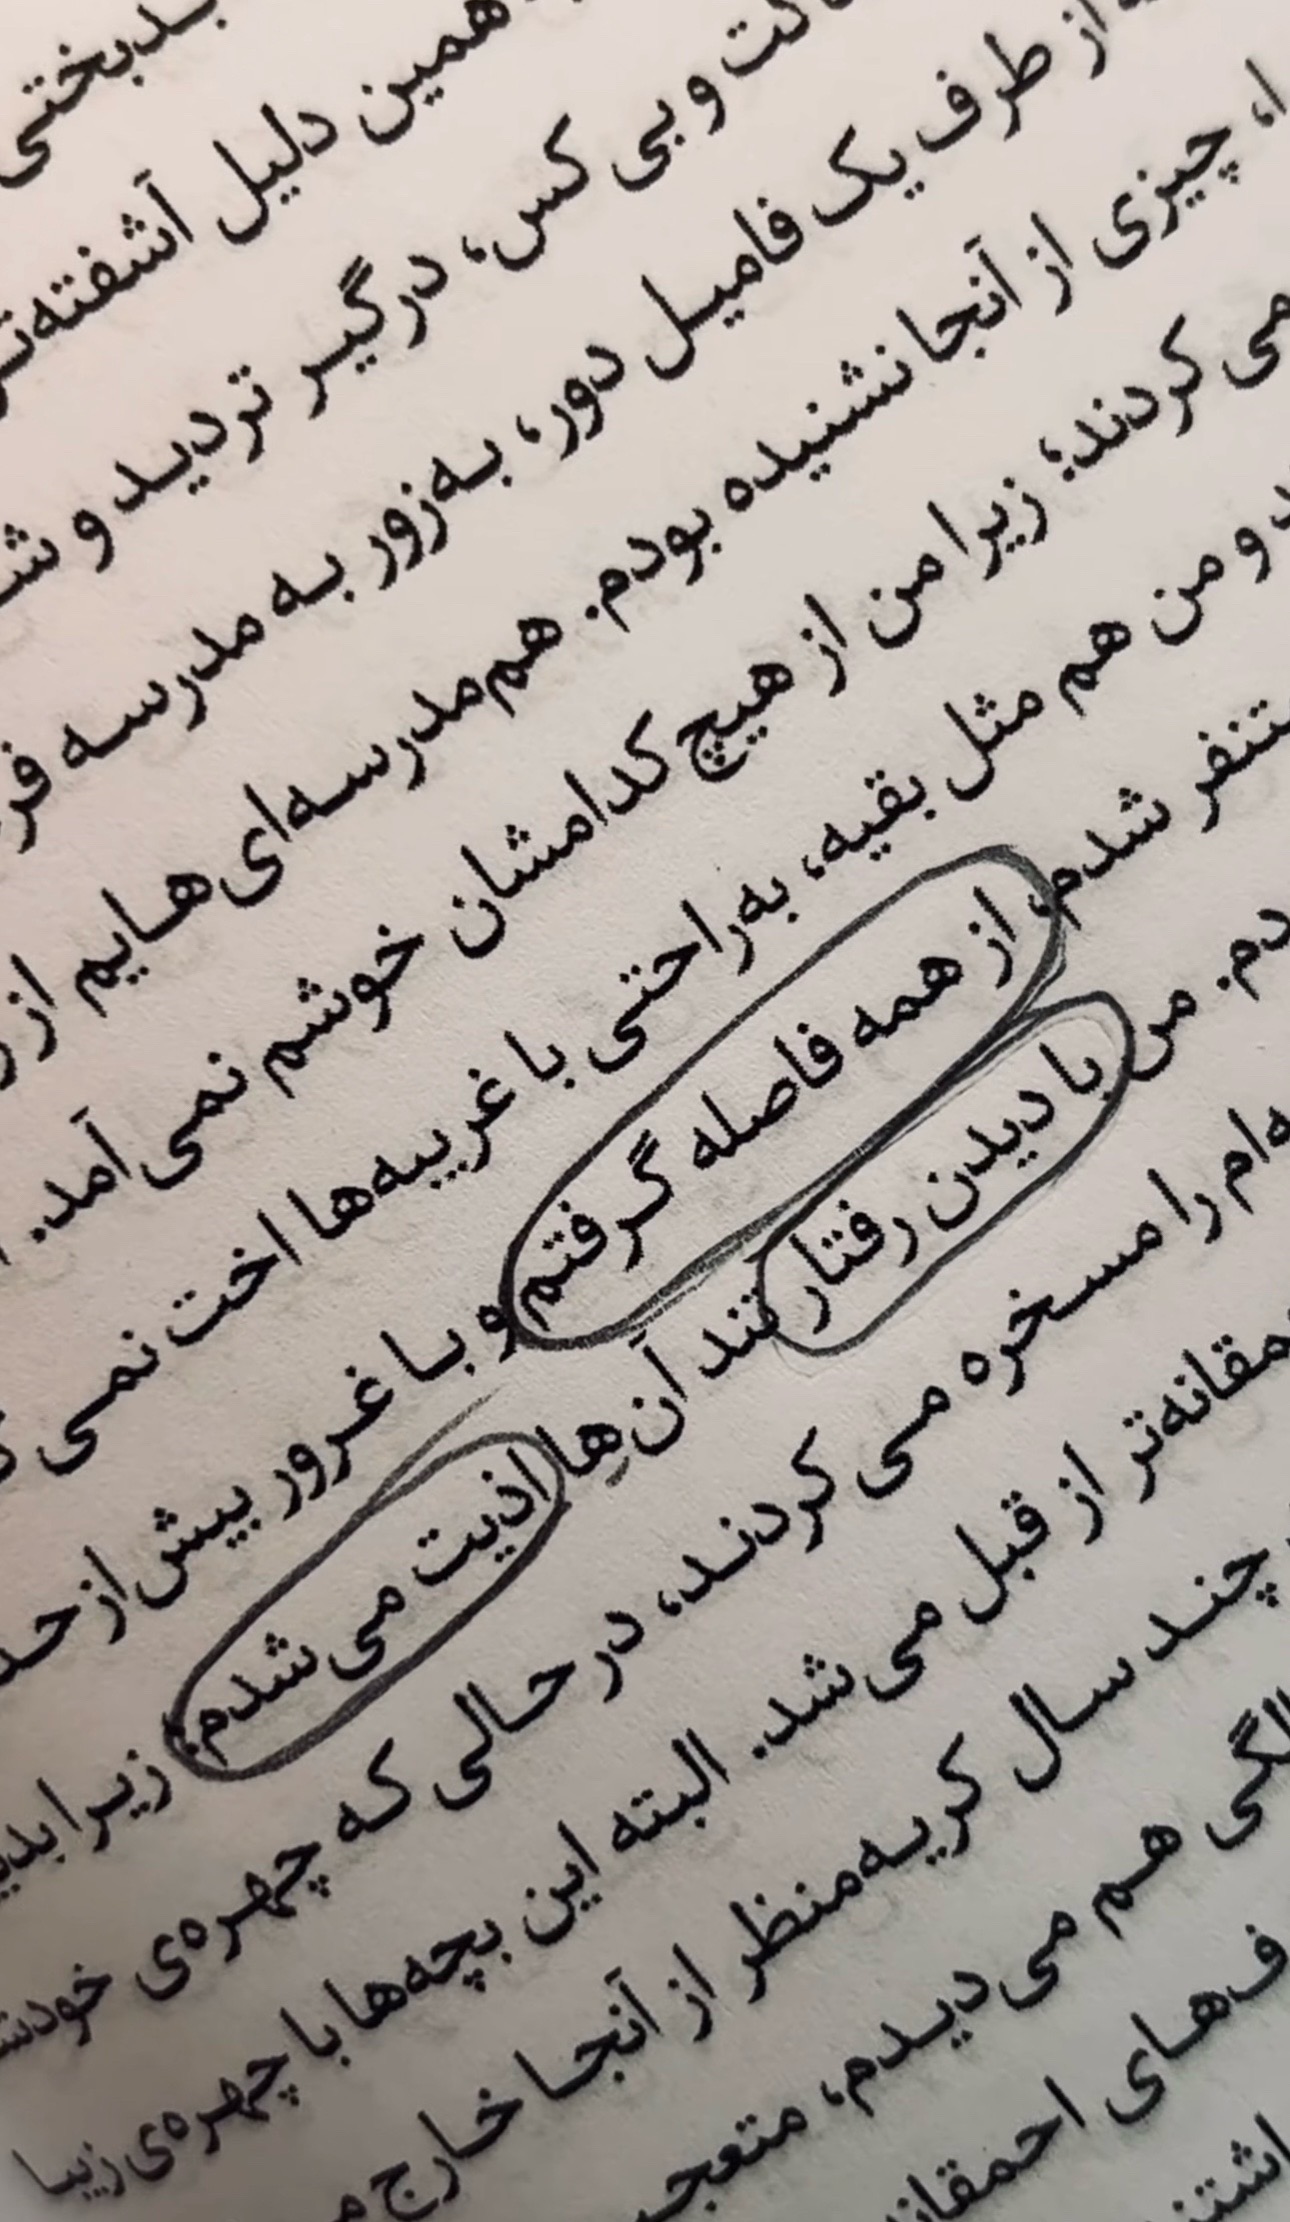 بدبختی
همین دلیل آشفته‌تر
و بی کس، درگیر تردید و
از طرف یک فامیل دور، به‌زور به مدرسه
چیزی از آنجا نشنیده بودم. هم‌مدرسه‌ای‌هایم از
می کردند؛ زیرا من از هیچ کدامشان خوشم نمی‌آمد.
و من هم مثل بقیه، به‌راحتی با غریبه‌ها اخت نمی
تنفر شدم، از همه فاصله گرفتم و با غرور بیش از حد
دم. من با دیدن رفتار تند آن‌ها اذیت می‌شدم؛ زیرا
ه‌ام را مسخره می کردند، در حالی که چهره‌ی
مقانه‌تر از قبل می‌شد. البته این بچه‌ها با چهره‌ی زیبا
چند سال کریه‌منظر از آنجا خارج
لگی هم می‌دیدم، متعجب
ف‌های احمقان